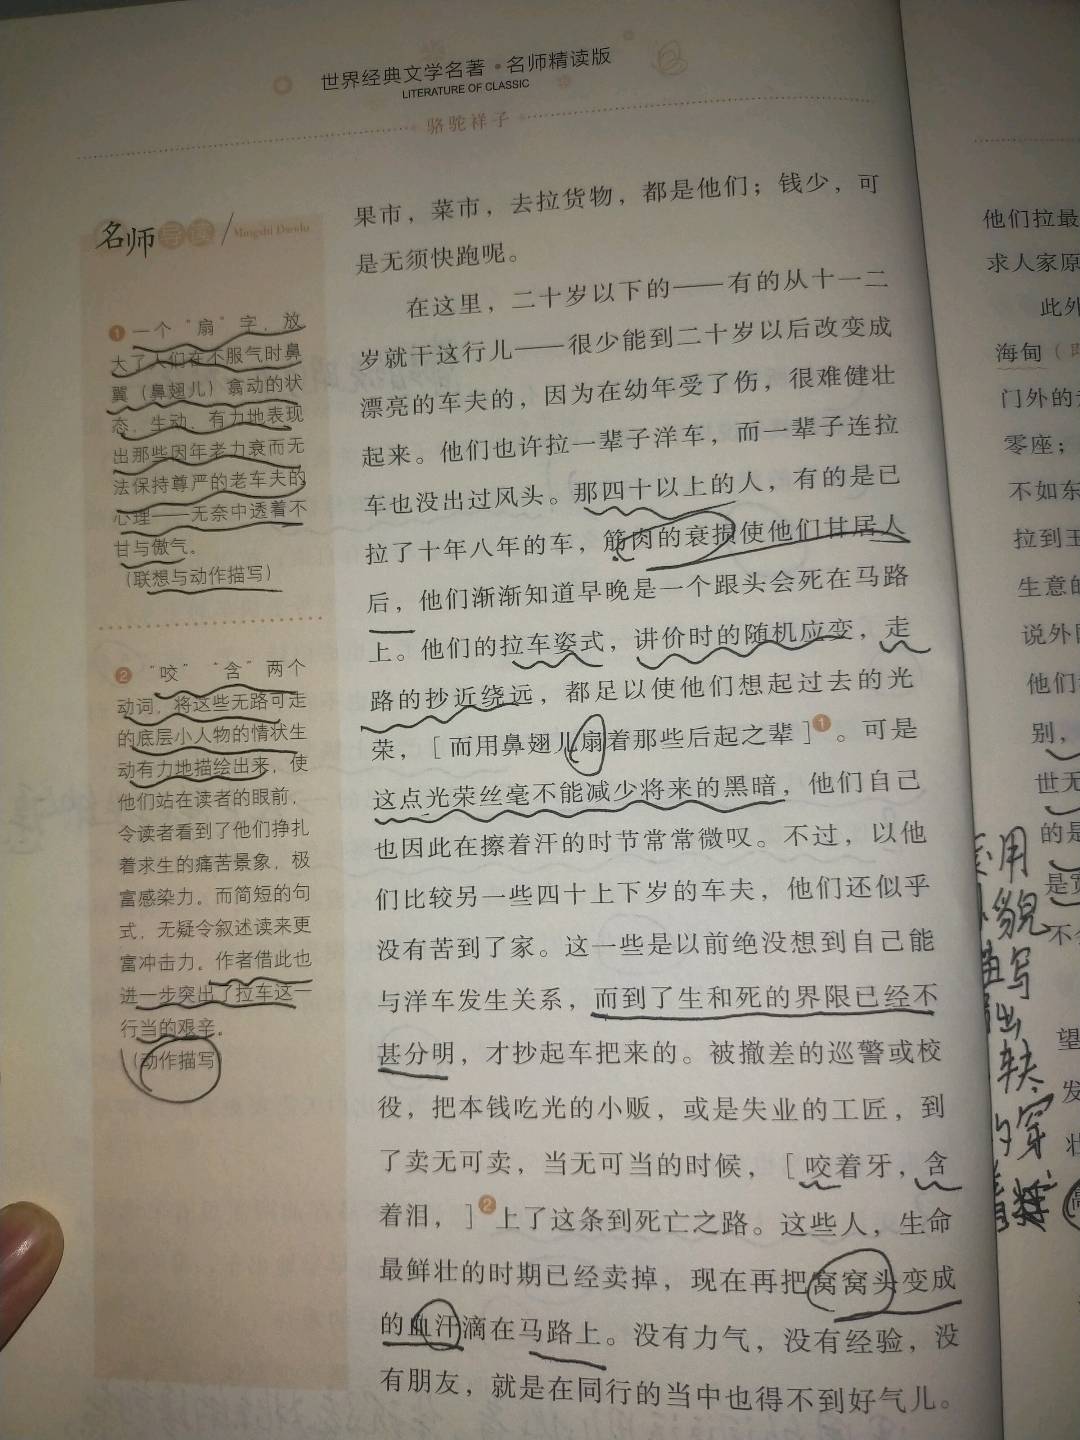 世界经典文学名著·名师精读版
LITERATURE OF CLASSIC
骆驼祥子
名师导读/Mingshi Daodu
❶一个“扇”字，放
大了人们在不服气时鼻
翼（鼻翅儿）翕动的状
态，生动、有力地表现
出那些因年老力衰而无
法保持尊严的老车夫的
心理——无奈中透着不
甘与傲气。
（联想与动作描写）
❷“咬”“含”两个
动词，将这些无路可走
的底层小人物的情状生
动有力地描绘出来，使
他们站在读者的眼前，
令读者看到了他们挣扎
着求生的痛苦景象，极
富感染力。而简短的句
式，无疑令叙述读来更
富冲击力。作者借此也
进一步突出了拉车这一
行当的艰辛。
（动作描写）
果市，菜市，去拉货物，都是他们；钱少，可
是无须快跑呢。
在这里，二十岁以下的——有的从十一二
岁就干这行儿——很少能到二十岁以后改变成
漂亮的车夫的，因为在幼年受了伤，很难健壮
起来。他们也许拉一辈子洋车，而一辈子连拉
车也没出过风头。那四十以上的人，有的是已
拉了十年八年的车，筋肉的衰损使他们甘居人
后，他们渐渐知道早晚是一个跟头会死在马路
上。他们的拉车姿式，讲价时的随机应变，走
路的抄近绕远，都足以使他们想起过去的光
荣，［而用鼻翅儿扇着那些后起之辈］❶。可是
这点光荣丝毫不能减少将来的黑暗，他们自己
也因此在擦着汗的时节常常微叹。不过，以他
们比较另一些四十上下岁的车夫，他们还似乎
没有苦到了家。这一些是以前绝没想到自己能
与洋车发生关系，而到了生和死的界限已经不
甚分明，才抄起车把来的。被撤差的巡警或校
役，把本钱吃光的小贩，或是失业的工匠，到
了卖无可卖，当无可当的时候，［咬着牙，含
着泪，］❷上了这条到死亡之路。这些人，生命
最鲜壮的时期已经卖掉，现在再把窝窝头变成
的血汗滴在马路上。没有力气，没有经验，没
有朋友，就是在同行的当中也得不到好气儿。
他们拉最
求人家原
此外
海甸
门外的
零座；
不如东
拉到王
生意的
说外
他们
别，
世无
的是
是
不
望
发
壮
用
貌
写
出
车夫
的穿
着